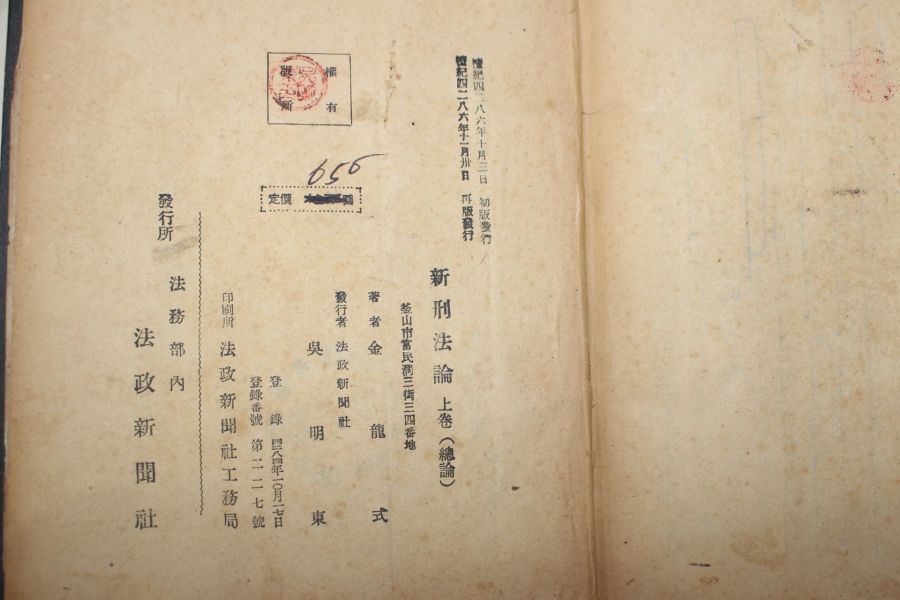 檀紀四二八六年十月三日　初版發行
檀紀四二八六年十一月卅日　再版發行
新刑法論 上卷(總論)
釜山市富民洞三街三四番地
著者 金龍式
發行者 法政新聞社
吳明東
登錄 四二八四年一〇月一七日
登錄番號 第二二七號
印刷所 法政新聞社工務局
發行所 法務部內
法政新聞社
權有
所
定價 圜
950